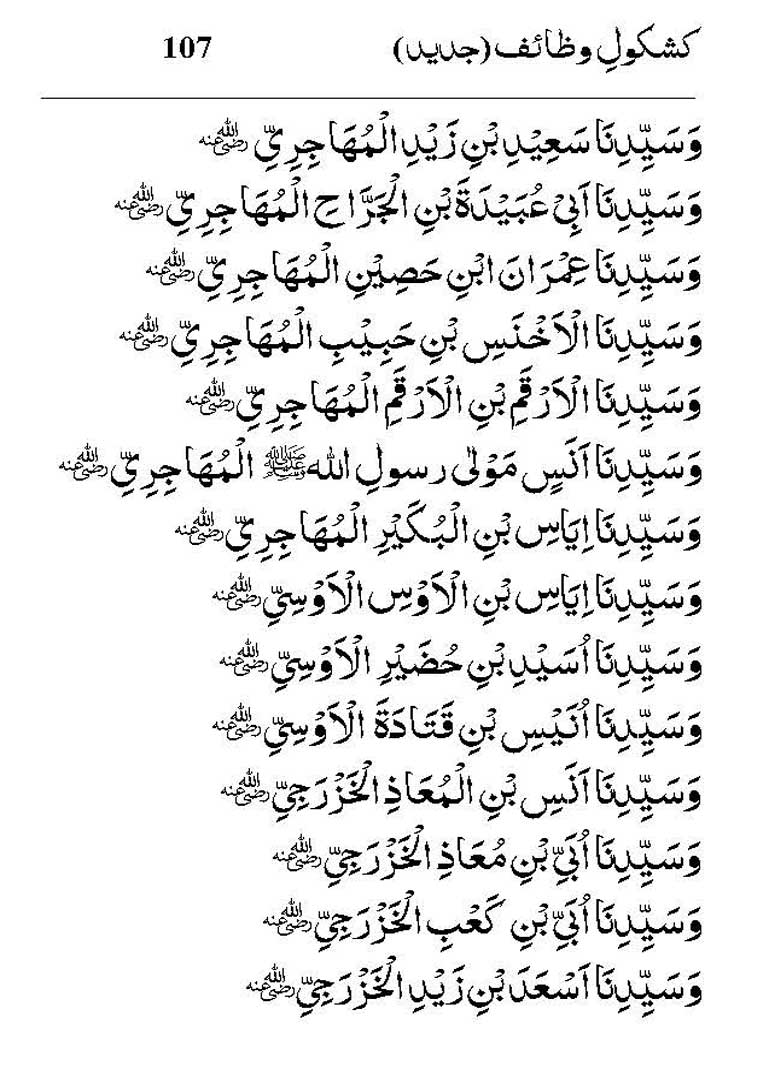 کشکولِ وظائف (جدید) 107
وَسَیِّدِنَا سَعِیْدِ بْنِ زَیْدِ الْمُهَاجِرِیِّ رضی اللہ عنہ
وَسَیِّدِنَا اَبِیْ عُبَیْدَةَ بْنِ الْجَرَّاحِ الْمُهَاجِرِیِّ رضی اللہ عنہ
وَسَیِّدِنَا عِمْرَانَ ابْنِ حَصِیْنِ الْمُهَاجِرِیِّ رضی اللہ عنہ
وَسَیِّدِنَا الْاَخْنَسِ بْنِ حَبِیْبِ الْمُهَاجِرِیِّ رضی اللہ عنہ
وَسَیِّدِنَا الْاَرْقَمِ بْنِ الْاَرْقَمِ الْمُهَاجِرِیِّ رضی اللہ عنہ
وَسَیِّدِنَا اَنَسٍ مَوْلٰی رسولِ اللہ ﷺ الْمُهَاجِرِیِّ رضی اللہ عنہ
وَسَیِّدِنَا اِیَاسِ بْنِ الْبُکَیْرِ الْمُهَاجِرِیِّ رضی اللہ عنہ
وَسَیِّدِنَا اِیَاسِ بْنِ الْاَوْسِ الْاَوْسِیِّ رضی اللہ عنہ
وَسَیِّدِنَا اُسَیْدِ بْنِ حُضَیْرِ الْاَوْسِیِّ رضی اللہ عنہ
وَسَیِّدِنَا اُنَیْسِ بْنِ قَتَادَةَ الْاَوْسِیِّ رضی اللہ عنہ
وَسَیِّدِنَا اَنَسِ بْنِ الْمُعَاذِ الْخَزْرَجِیِّ رضی اللہ عنہ
وَسَیِّدِنَا اُبَیِّ بْنِ مُعَاذِ الْخَزْرَجِیِّ رضی اللہ عنہ
وَسَیِّدِنَا اُبَیِّ بْنِ کَعْبِ الْخَزْرَجِیِّ رضی اللہ عنہ
وَسَیِّدِنَا اَسْعَدَ بْنِ زَیْدِ الْخَزْرَجِیِّ رضی اللہ عنہ